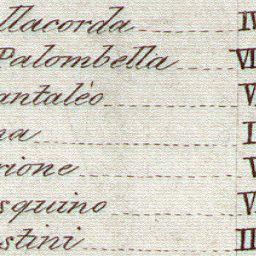 llacorda IV
Palombella VI
antaléo V
na I
rione V
squino V
stini II